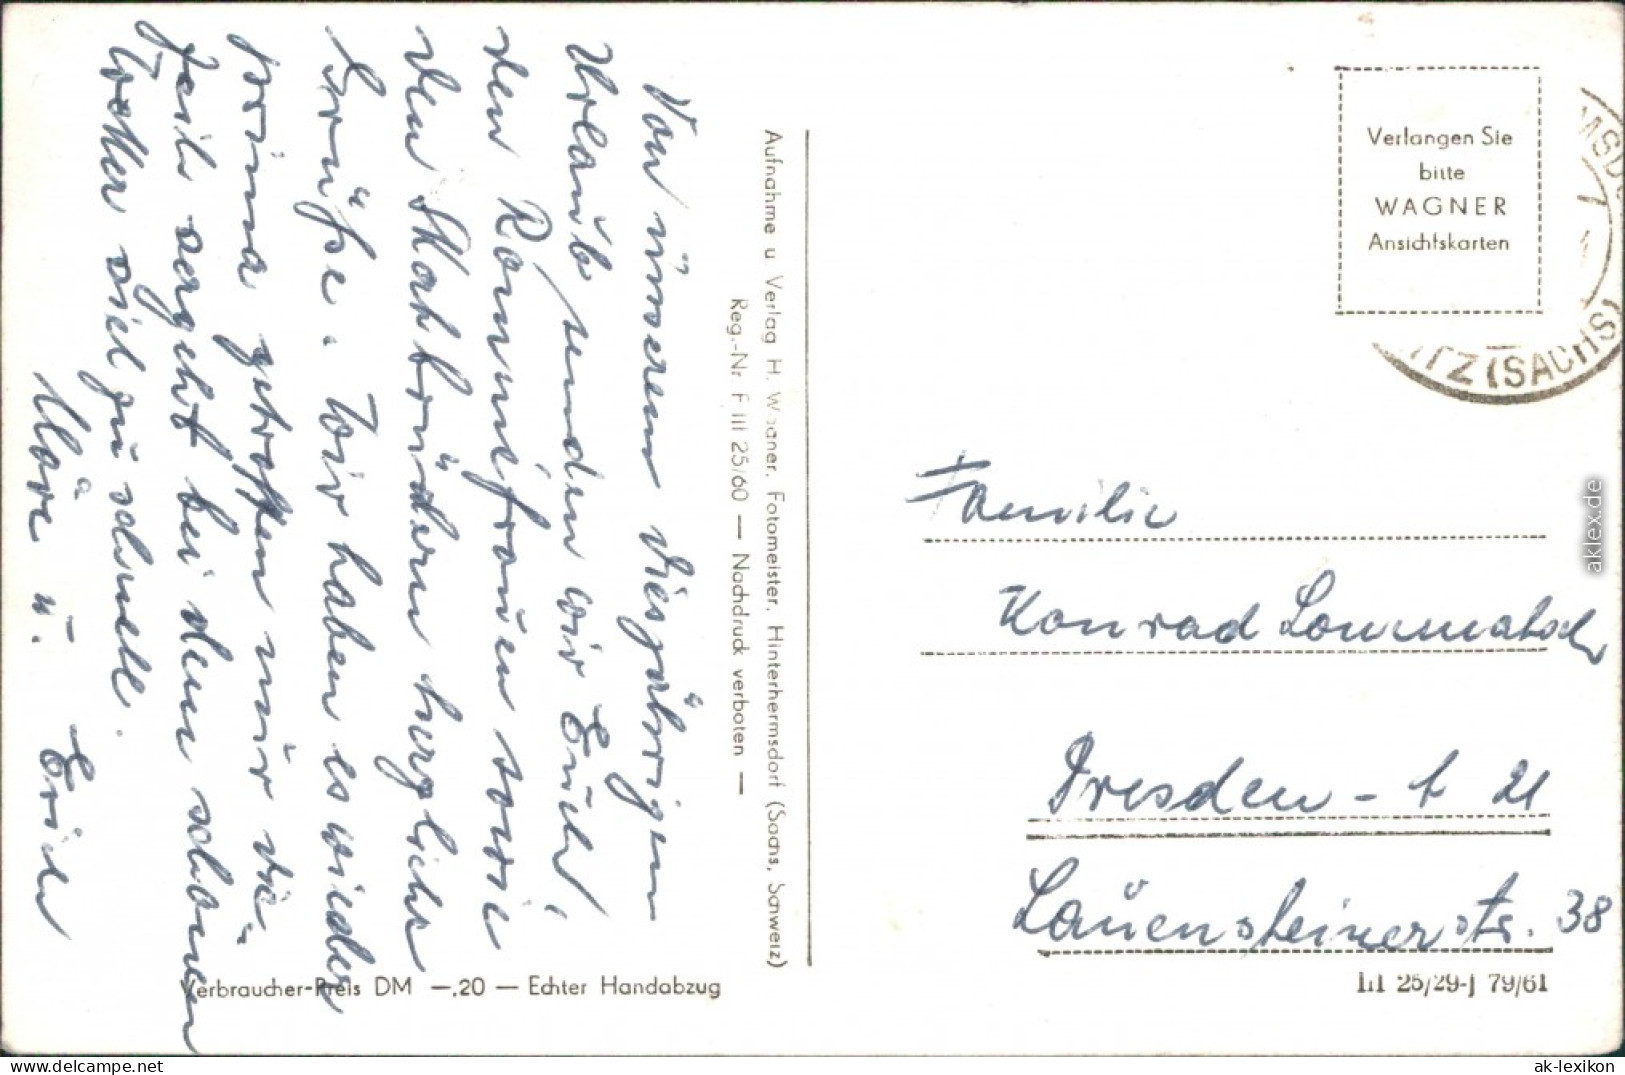 Von unserem diesjährigen
Urlaub senden wir Euch,
den Rommeefrauen sowie
den Skatbrüdern herzliche
Grüße. Wir haben es wieder
prima getroffen nur die
Zeit vergeht bei dem schönen
Wetter viel zu schnell.
u. Erich
Aufnahme u Verlag H. Wagner, Fotomeister, Hinterhermsdorf (Sächs. Schweiz)
Reg.-Nr. F III 25/60 — Nachdruck verboten —
Verbraucher-Preis DM —.20 — Echter Handabzug
Verlangen Sie
bitte
WAGNER
Ansichtskarten
ITZ (SACHS)
Familie
Konrad Lommatzsch
Dresden - A 21
Lauensteinerstr. 38
III 25/29-J 79/61
aklex.de
www.delcampe.net
ak-lexikon